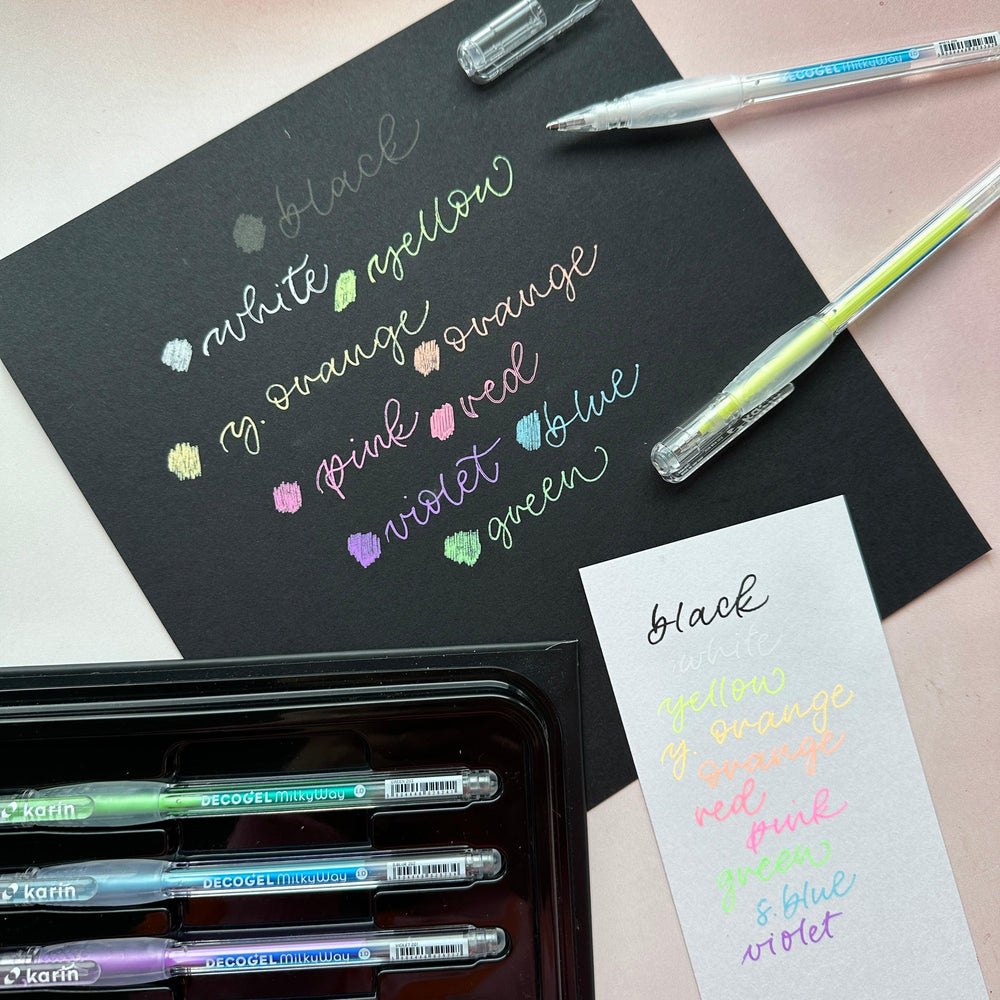 black
white yellow
y. orange orange
pink red
violet blue
green
DECOGEL MilkyWay 1.0
black
white
yellow
y. orange
orange
red
pink
green
s. blue
violet
karin DECOGEL MilkyWay 1.0 GREEN 203
karin DECOGEL MilkyWay 1.0
karin DECOGEL MilkyWay 1.0 VIOLET 201